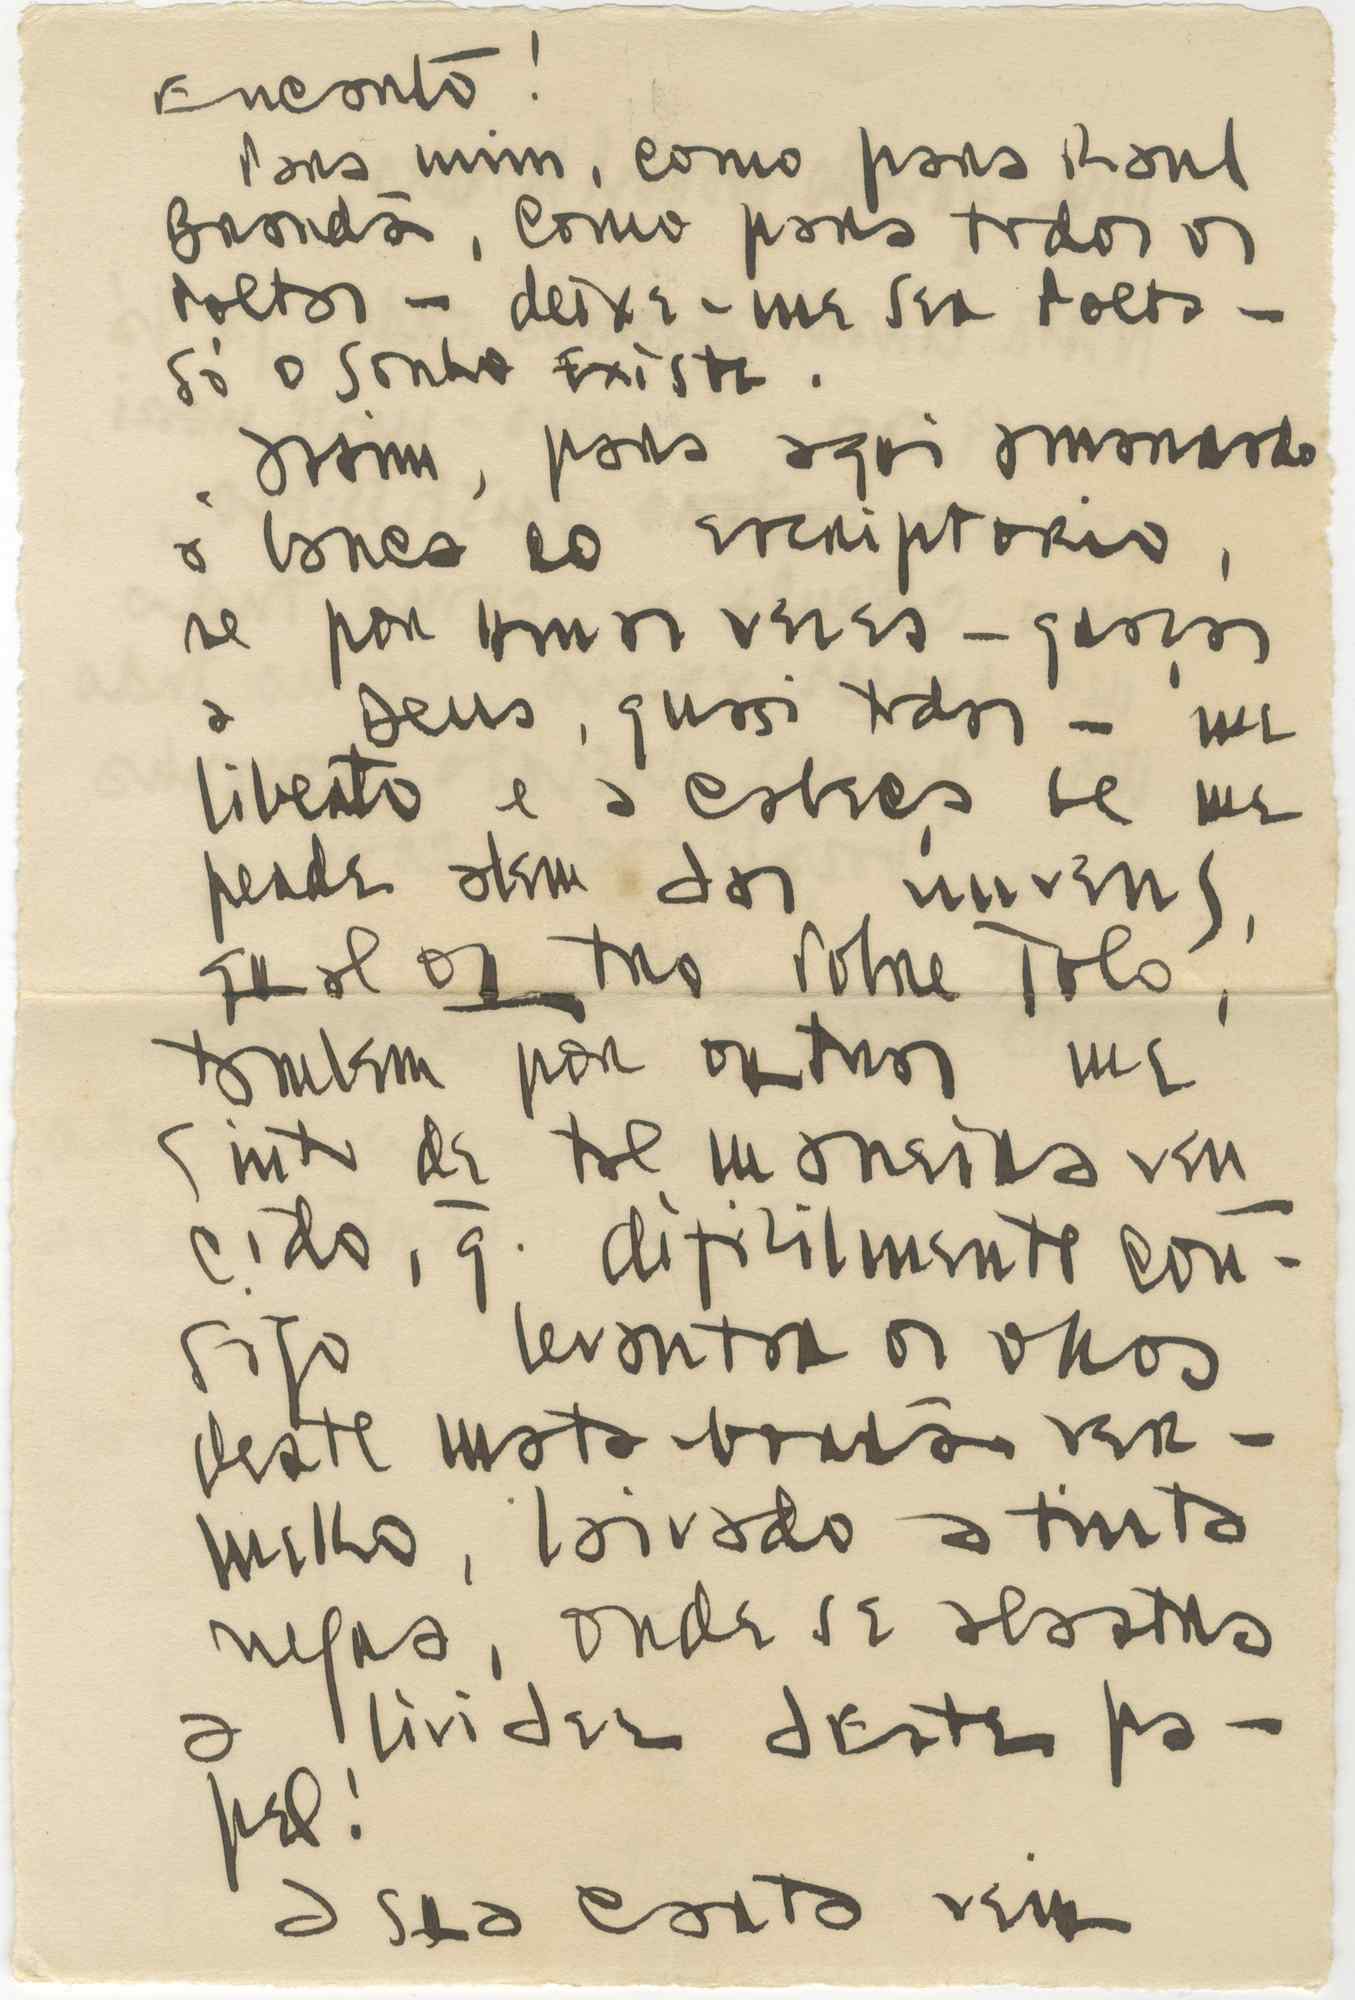 Encanto!
Para mim, como para Raul
Brandão, como para todos os
Poetas — deixe-me ser Poeta —
só o Sonho Existe.
Assim, para aqui amarrado
á banca do escriptorio,
se por umas vezes — graças
a Deus, quasi todas — me
liberto e a cabeça se me
perde alem das nuvens,
qual outro Pobre Tolo,
tambem por outras me
sinto de tal maneira ven
cido, q̄. dificilmente con-
sigo levantar os olhos
deste mata-borrão ver-
melho, laivado a tinta
negra, onde se alastra
a lividez deste pa-
pel!
A sua carta vem